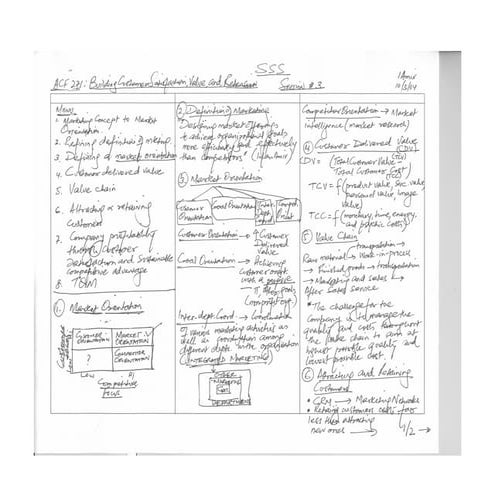 SSS
ACF 231: Building Customer Satisfaction, Value and Retention Session #3
10/3/04
Menu
1. Marketing Concept to Market
Orientation
2. Refining definition of mktng.
3. Defining a market orientation
4. Customer delivered value
5. Value chain
6. Attracting & retaining
customers
7. Company profitability
through customer
satisfaction and sustainable
competitive advantage
8. TQM
1. Market Orientation
CUSTOMER ORIENTATION
MARKET ORIENTATION
?
COMPETITOR ORIENTATION
Low
Competitor
Focus
2. Definition of Marketing
"Designing market offerings
to achieve organizational goals
more efficiently and effectively
than competitors"
3. Market Orientation
Customer Orientation
Goal Orientation
Inter-Dept Coord
Customer Orientation → Customer
Delivered
Value
Goal Orientation → Achieving
customer
with a purpose
Inter-dept. Coord → Coordination
of various marketing activities as
well as coordination among
different depts. within organization
(INTEGRATED MARKETING)
OTHER
DEPARTMENTS
Competitor Orientation → Market
intelligence (market research)
4. Customer Delivered Value
(CDV)
CDV = (Total Customer Value (TCV)
Total Customer Cost)
(TCC)
TCV = f (product value, svc. value
personnel value, image
value)
TCC = f (monetary, time, energy,
and psychic costs)
5. Value Chain
→ transportation →
Raw material → Work-in-process
→ Finished goods → transportation
→ Marketing and sales →
After Sales Service
• The challenge for the
company is to manage the
quality and costs throughout
the value chain to aim at
highest possible quality and
lowest possible cost.
6. Attracting and Retaining
Customers
• CRM → Marketing Network
• Retaining customers costs far
less than attracting
new ones →
1/2 →